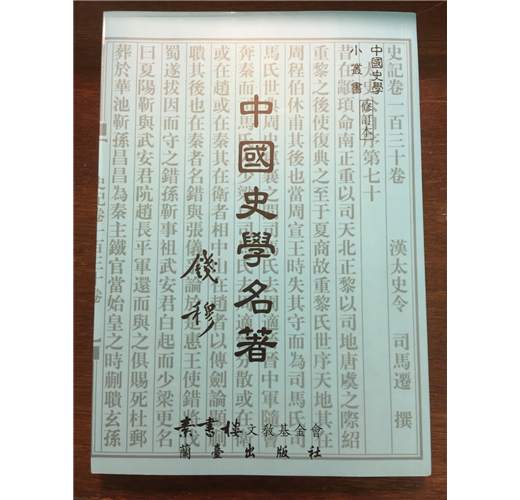 中國史學
小叢書
修訂本
中國史學名著
錢穆
素書樓文教基金會
蘭臺出版社
史記卷一百三十卷
序第七十
漢太史令 司馬遷 撰
昔在顓頊命南正重以司天北正黎以司地唐虞之際紹
重黎之後使復典之至于夏商故重黎氏世序天地其在
周程伯休甫其後也當周宣王時失其守而為司馬氏司
馬氏世典周史惠襄之間司馬氏去適晉中軍隨會
奔秦而司馬少梁司馬氏去適分散或在
或在趙或在秦其在衛者相中山在趙者以傳劍論顯
聵其後也在秦者名錯與張儀論於是惠王使錯將
蜀遂拔因而守之錯孫靳事武安君白起而少梁更名
曰夏陽靳與武安君阬趙長平軍還而與之俱賜死杜郵
葬於華池靳孫昌昌為秦主鐵官當始皇之時蒯聵玄孫
史記卷一百三十卷